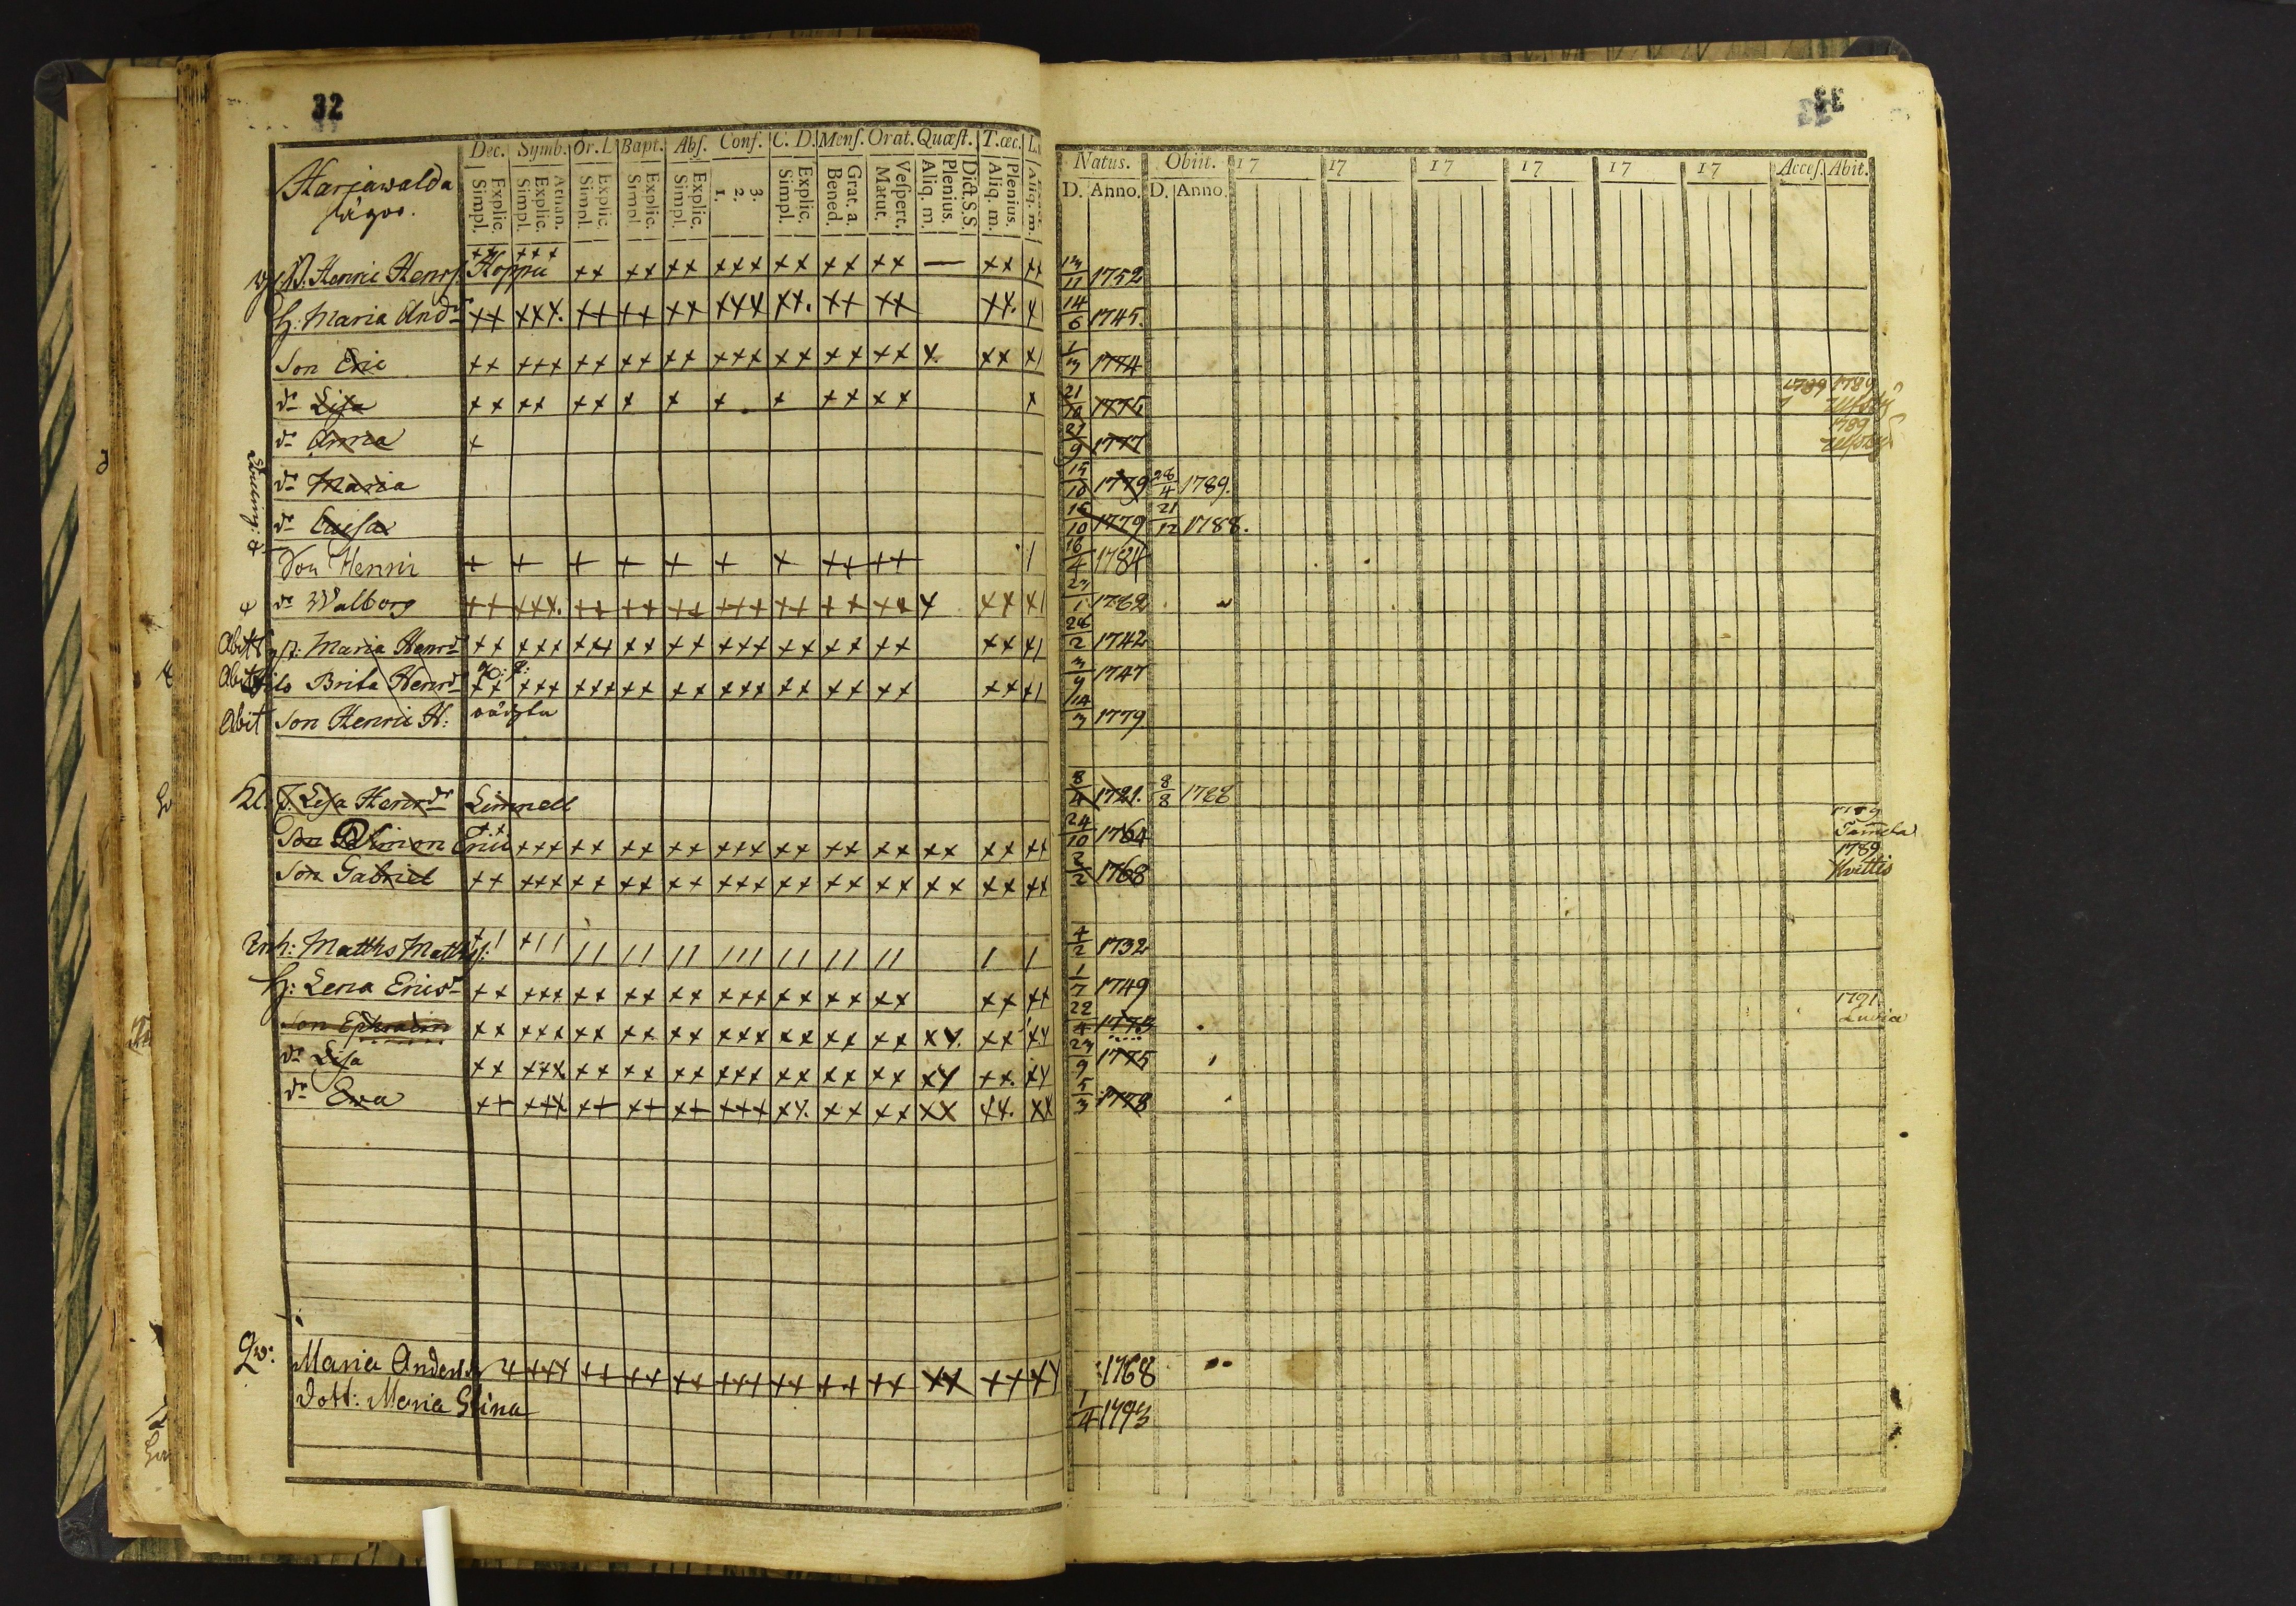 32
33
Dec. Symb. Or. L. Bapt. Abs. Conf. C. D. Mens. Orat. Quæst. T. æc. L.
Harjawalda
Explic. Simpl. Athan. Explic. Simpl. Explic. Simpl. Explic. Simpl. Explic. Simpl. 3. 2. 1. Explic. Simpl. Grat. a. Bened. Vespert. Matut. Dict. S. S. Plenius. Aliq. m. Plenius. Aliq. m. Aliq. m.
Natus. Obiit. 17 17 17 17 17 17 Access. Abit.
D. Anno. D. Anno.
Henric Henrs. Hoppu ++ +++ ++ ++ ++ +++ ++ ++ ++ — ++ ++ 13/11 1752
H: Maria And ++ +++. ++ ++ ++ +++ ++. ++ ++ ++. 14/6 1745.
Son Eric ++ +++ ++ ++ ++ +++ ++ ++ ++ + ++ 1/3 1774
dr Lisa ++ ++ ++ + + + + ++ ++ + 21/10 1775 1789 1789
dr Anna + 21/9 1777 1789
dr Maria 15/10 1779 28/4 1789.
dr Caisa 15/10 1779 21/12 1788.
Son Henric + + + + + + + ++ ++ / 16/4 1784
dr Walborg ++ +++. ++ ++ ++ +++ ++ ++ ++ + ++ 23/1 1762
Abit Maria Henrdr ++ +++ +++ ++ ++ +++ ++ ++ ++ ++ 28/2 1742
Abit Brita Henrdr ++ +++ +++ ++ ++ +++ ++ ++ ++ ++ 3/9 1747
Abit Son Henric H: 14/3 1779
Lisa Henrdr Limnell 8/4 1721. 8/8 1788
Son Simon Eric ++ +++ ++ ++ ++ +++ ++ ++ ++ ++ ++ ++ 24/10 1764 1789
Son Gabriel ++ +++ ++ ++ ++ +++ ++ ++ ++ ++ ++ ++ 2/2 1768 1789 Hvittis
Inh: Matths Matths: +/ +// // // // /// // // // / / 4/2 1732
H: Lena Ericsdr ++ +++ ++ ++ ++ +++ ++ ++ ++ ++ ++ 1/7 1749
Son Ephraim ++ +++ ++ ++ ++ +++ ++ ++ ++ ++. ++ ++ 22/4 1773 1791. Luvia
dr Lisa ++ +++ ++ ++ ++ +++ ++ ++ ++ ++ ++. ++ 23/9 1775
dr Ewa ++ +++ ++ ++ ++ +++ ++. ++ ++ ++ ++. ++ 5/3 1778
Qv: Maria Anders ++++ ++ ++ ++ +++ ++ ++ ++ ++ ++ ++ 1768
Dott: Maria Stina 1/4 1793